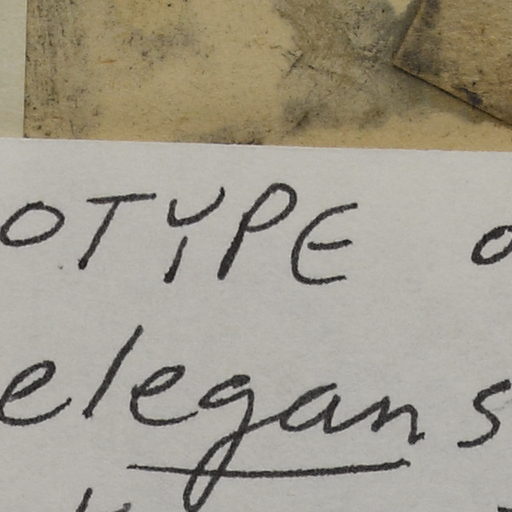 OTYPE o
elegans